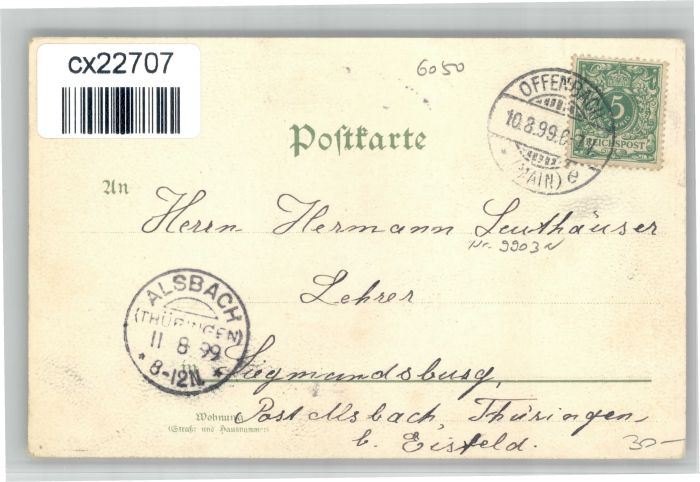 cx22707
6050
OFFENBACH
10.8.99.
(MAIN) e
5
REICHSPOST
Postkarte
An
Herrn Hermann Leuthäuser
Nr. 9903N
Lehrer
ALSBACH
(THÜRINGEN)
11 8 99
* 8-12N. *
in Siegmundsburg,
Wohnung
(Straße und Hausnummer)
Post Alsbach, Thüringen,
b. Eisfeld.
30-